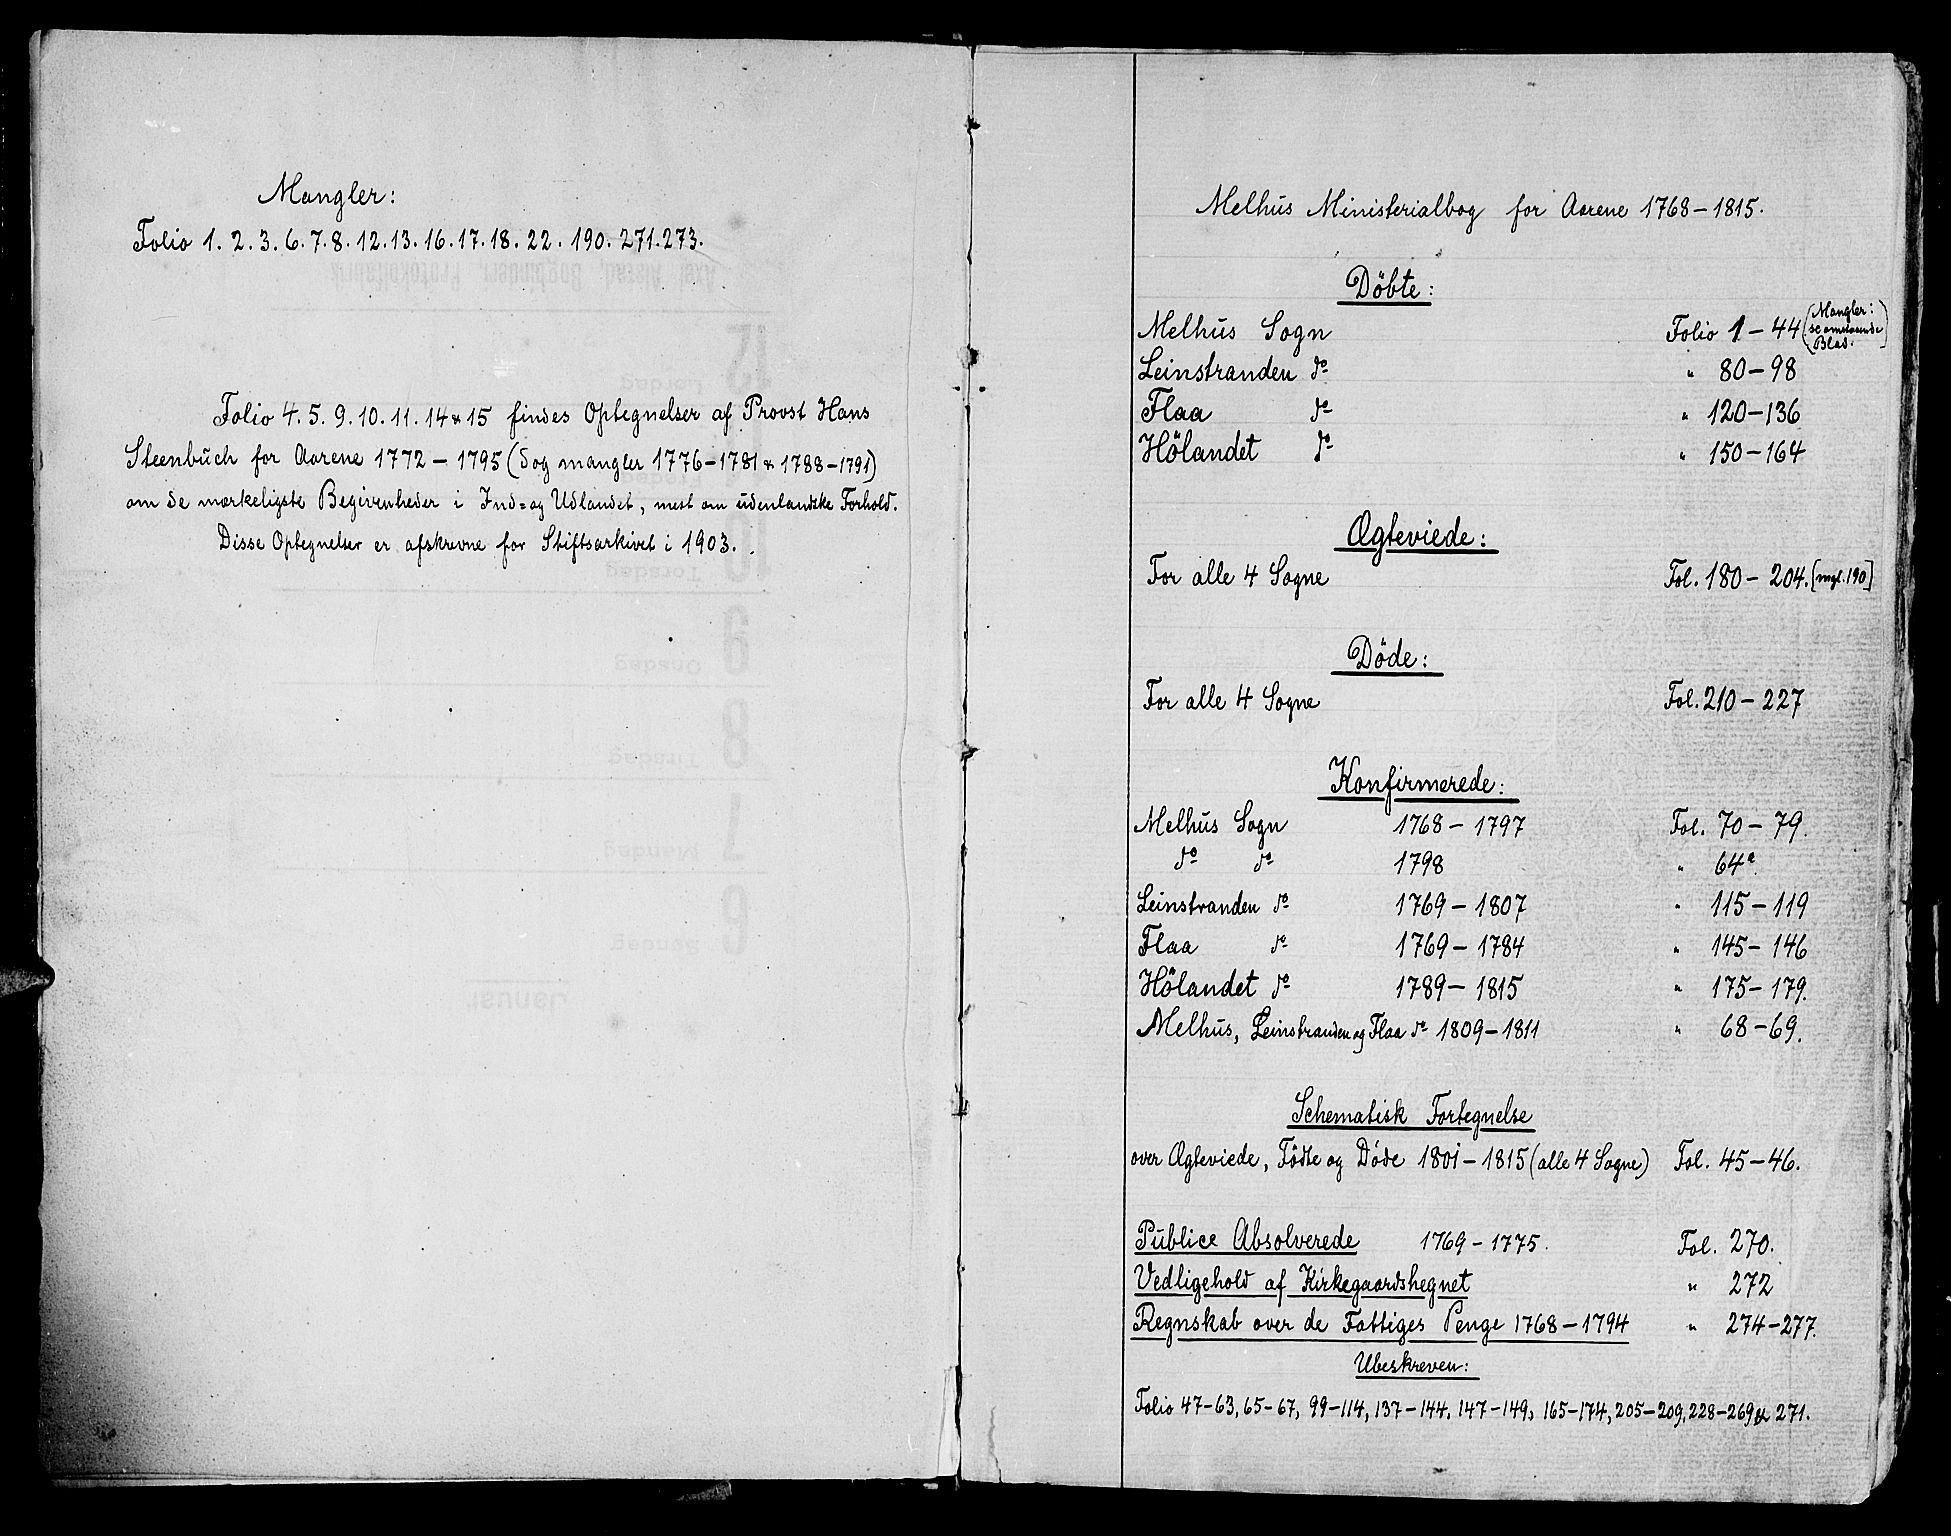 Mangler:
Folio 1. 2. 3. 6. 7. 8. 12. 13. 16. 17. 18. 22. 190. 271. 273.
Folio 4. 5. 9. 10. 11. 14 & 15 findes Optegnelser af Provst Hans
Steenbuch for Aarene 1772 – 1795 (dog mangler 1776–1781 & 1788–1791)
om de mærkeligste Begivenheder i Ind= og Udlandet, mest om udenlandske Forhold.
Disse Optegnelser er afskrevne for Stiftsarkivet i 1903.
Axel Alstad, Bogbinderi, Protokolfabrik
12 Lørdag
11 Fredag
10 Torsdag
9 Onsdag
8 Tirsdag
7 Mandag
6 Søndag
Januar
Melhus Ministerialbog for Aarene 1768 – 1815.
Döbte:
Melhus Sogn Folio 1 – 44 (Mangler: se omstaaende Blad.)
Leinstranden do " 80 – 98
Flaa do " 120 – 136
Hölandet do " 150 – 164
Ægteviede:
For alle 4 Sogne Fol. 180 – 204. [mgl. 190]
Döde:
For alle 4 Sogne Fol. 210 – 227
Konfirmerede:
Melhus Sogn 1768 – 1797 Fol. 70 – 79.
do do 1798 " 64a.
Leinstranden do 1769 – 1807 " 115 – 119
Flaa do 1769 – 1784 " 145 – 146
Hölandet do 1789 – 1815 " 175 – 179.
Melhus, Leinstranden og Flaa do 1809 – 1811 " 68 – 69.
Schematisk Fortegnelse
over Ægteviede, Födte og Döde 1801 – 1815 (alle 4 Sogne) Fol. 45 – 46.
Publice Absolverede 1769 – 1775. Fol. 270.
Vedligehold af Kirkegaardshegnet " 272
Regnskab over de Fattiges Penge 1768 – 1794 " 274 – 277.
Ubeskreven:
Folio 47–63, 65–67, 99–114, 137–144, 147–149, 165–174, 205–209, 228–269 & 271.